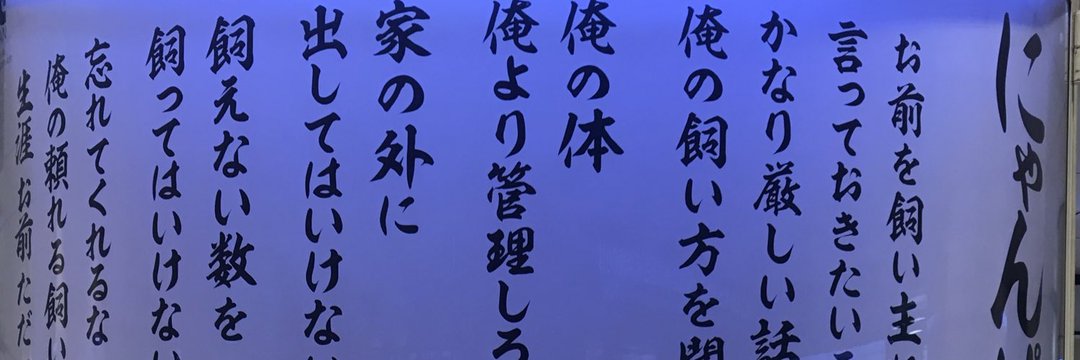 にゃん
お前を飼い主
言っておきたい
かなり厳しい話
俺の飼い方を
俺の体
俺より管理しろ
家の外に
出してはいけない
飼えない数を
飼ってはいけない
忘れてくれるな
俺の頼れる飼い
生涯お前ただ